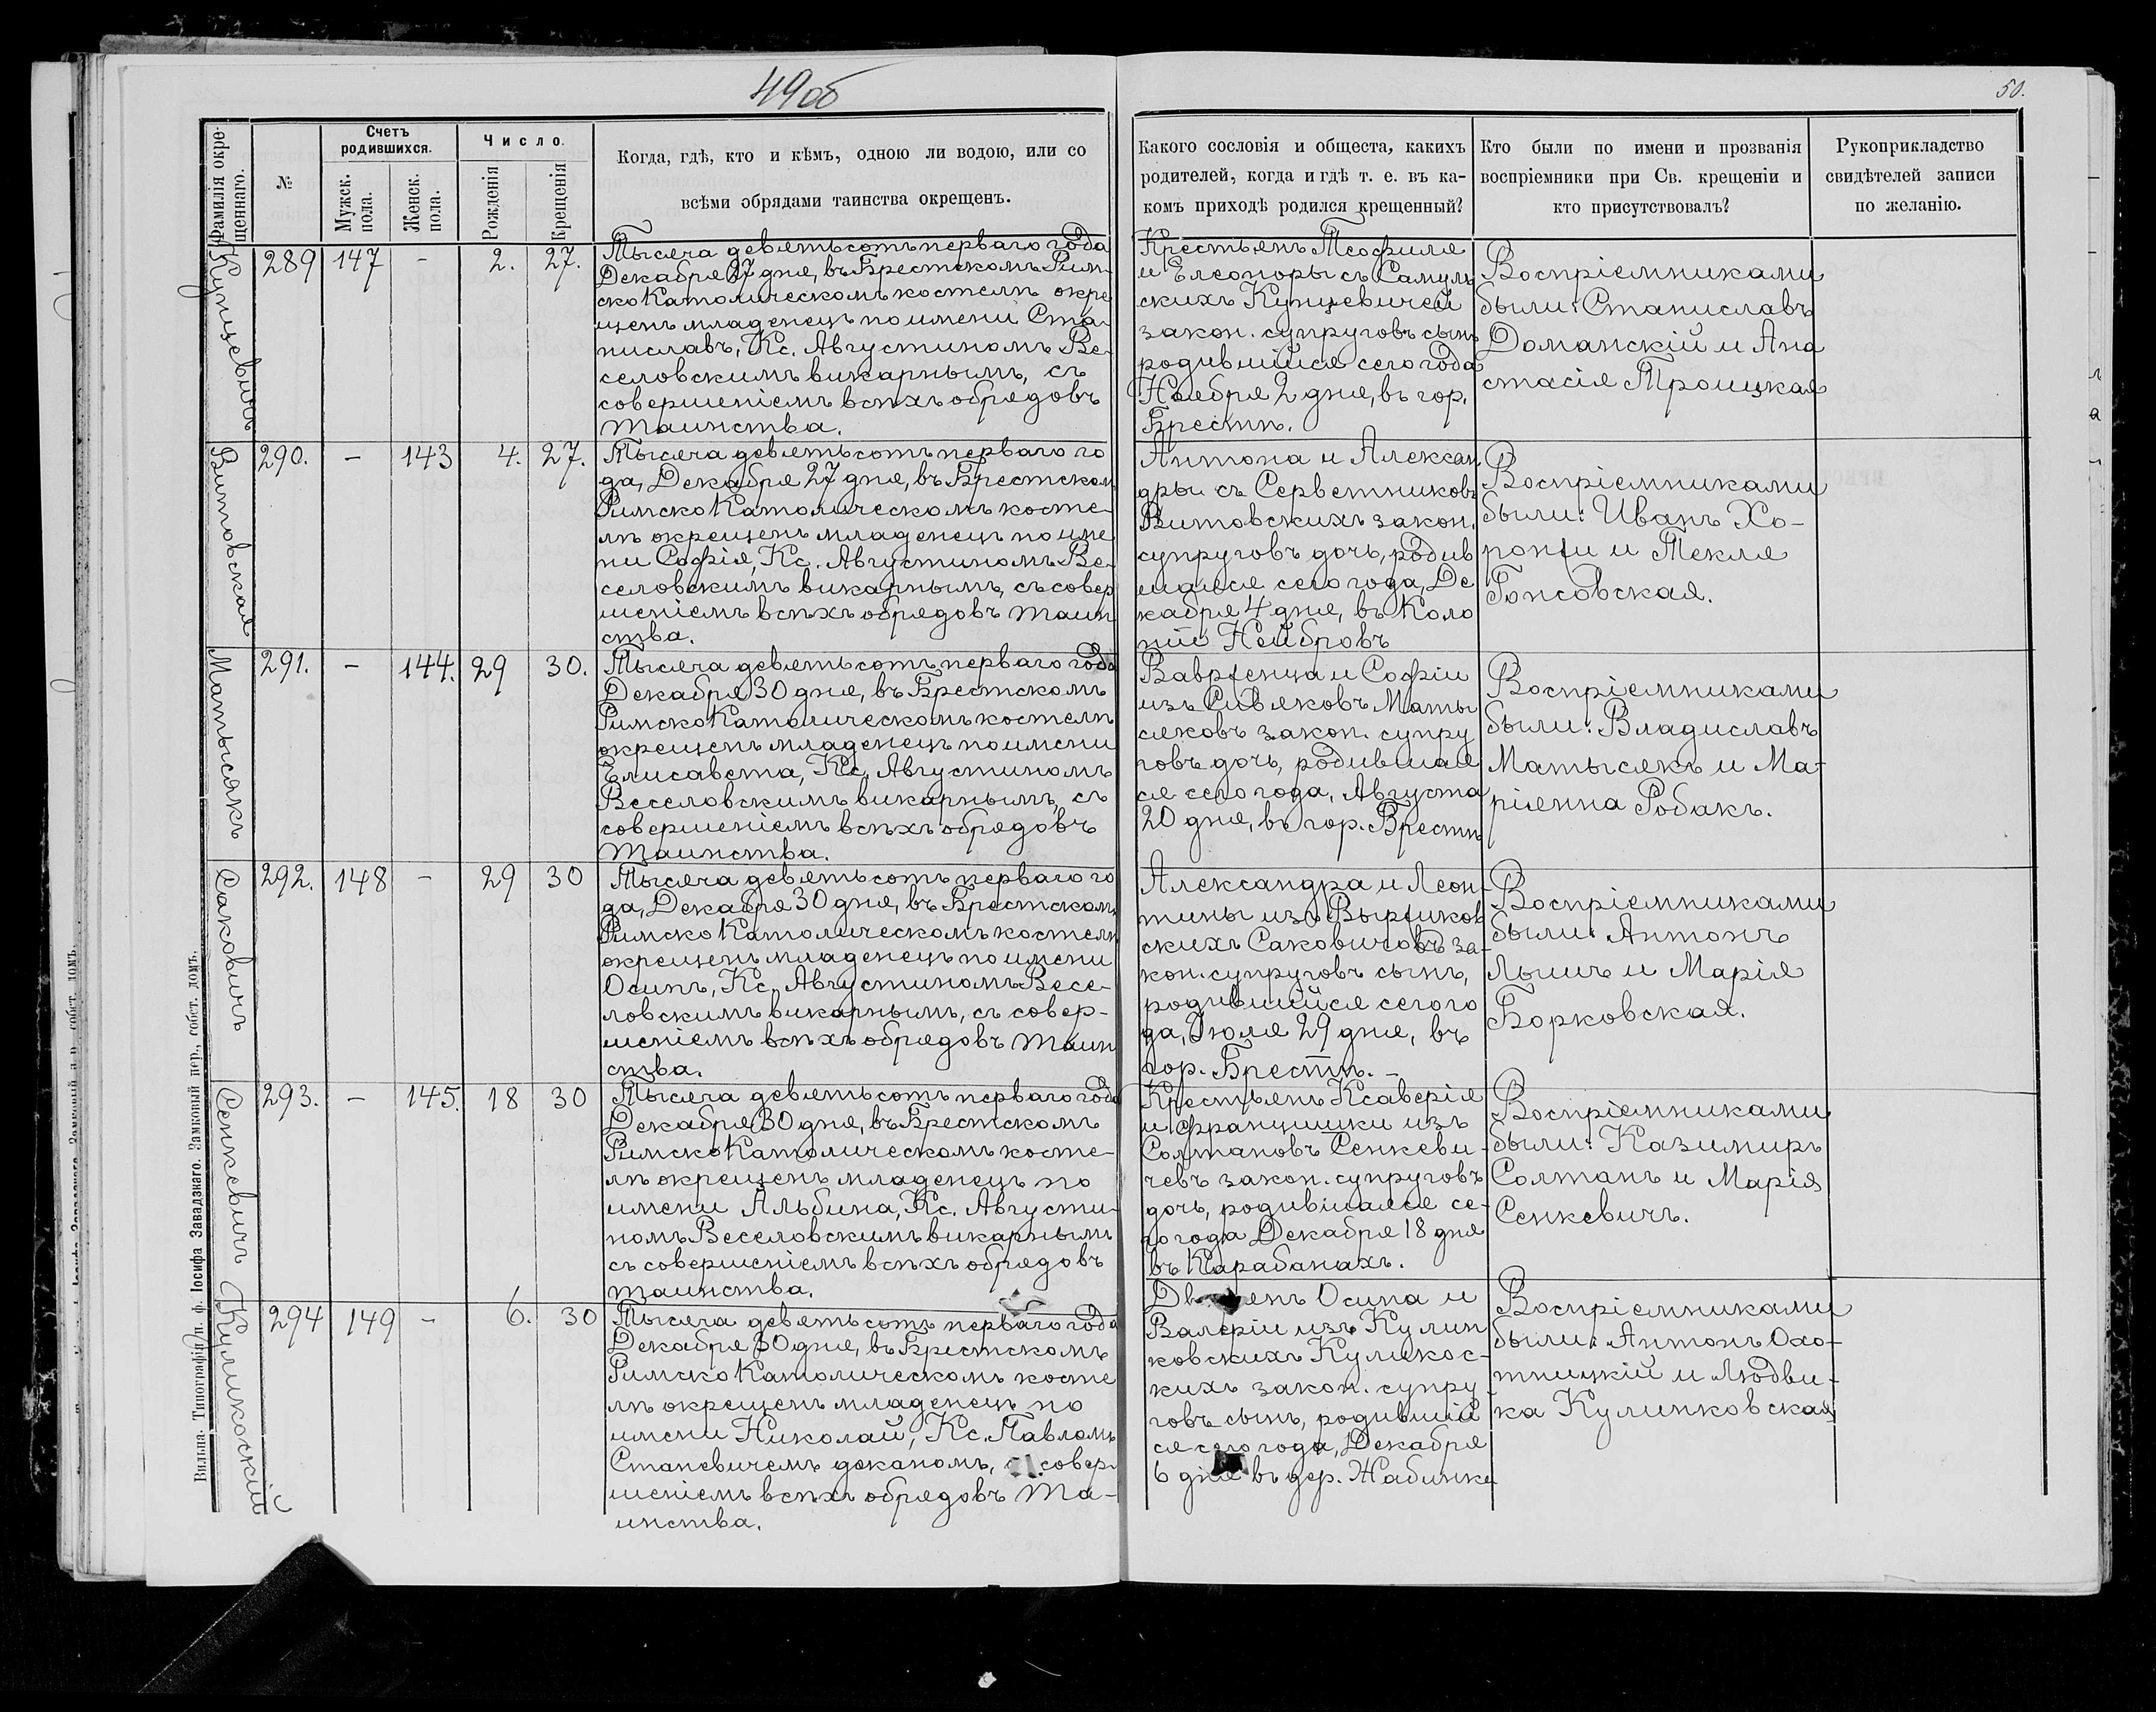 49об
50.
Фамилія окре-
щеннаго.
№
Счетъ
родившихся.
Мужск.
пола.
Женск.
пола.
Число.
Рожденія
Крещенія
Когда, гдѣ, кто и кѣмъ, одною ли водою, или со
всѣми обрядами таинства окрещенъ.
Какого сословія и общеста, какихъ
родителей, когда и гдѣ т. е. въ ка-
комъ приходѣ родился крещенный?
Кто были по имени и прозванія
воспріемники при Св. крещеніи и
кто присутствовалъ?
Рукоприкладство
свидѣтелей записи
по желанію.
Кунцевичъ
289 147 - 2. 27.
Тысяча девятьсотъ перваго года
Декабря 27 дня, въ Брестскомъ Рим-
ско Католическомъ костелѣ окре
щенъ младенецъ по имени Ста-
ниславъ, Кс. Августиномъ Ве-
селовскимъ викарнымъ, съ
совершеніемъ всѣхъ обрядовъ
таинства.
Крестьянъ Теофиля
и Елеоноры съ Самуль
скихъ Кунцевичей
закон. супруговъ сынъ
родившійся сего года
Ноября 2 дня, въ гор.
Брестѣ.
Воспріемниками
были: Станиславъ
Доманскій и Ана
стасія Троицкая
Витовская
290. - 143 4. 27.
Тысяча девятьсотъ перваго го
да, Декабря 27 дня, въ Брестском
Римско Католическомъ косте-
лѣ окрещенъ младенецъ по име
ни Софія, Кс. Августиномъ Ве-
селовскимъ викарнымъ, съ совер
шеніемъ всѣхъ обрядовъ таин
ства.
Антона и Алексан
дры съ Серветниковъ
Витовскихъ закон.
супруговъ дочь, родив
шаяся сего года, Де
кабря 4 дня, въ Коло
ніи Нейбровъ
Воспріемниками
были: Иванъ Хо-
ронжи и Текля
Гонсовская.
Матысякъ
291. - 144. 29 30.
Тысяча девятьсотъ перваго года
Декабря 30 дня, въ Брестскомъ
Римско Католическомъ костелѣ
окрещенъ младенецъ по имени
Елисавета, Кс. Августиномъ
Веселовскимъ викарнымъ, съ
совершеніемъ всѣхъ обрядовъ
таинства.
Ваврженца и Софіи
изъ Сивяковъ Маты
сяковъ закон. супру
говъ дочь, родившая
ся сего года, Августа
20 дня, въ гор. Брестѣ
Воспріемниками
были: Владиславъ
Матысякъ и Ма-
ріянна Робакъ.
Саковичъ
292. 148 - 29 30
Тысяча девятьсотъ перваго го
да, Декабря 30 дня, въ Брестскомъ
Римско Католическомъ костелѣ
окрещенъ младенецъ по имени
Осипъ, Кс. Августиномъ Весе-
ловскимъ викарнымъ, съ совер-
шеніемъ всѣхъ обрядовъ таин
ства.
Александра и Леон-
тины изъ Выржиков
скихъ Саковичовъ за-
кон. супруговъ сынъ,
родившійся сего го
да, Іюля 29 дня, въ
гор. Брестѣ. -
Воспріемниками
были: Антонъ
Лышъ и Марія
Борковская.
Сенкевичъ
293. - 145. 18 30
Тысяча девятьсотъ перваго года
Декабря 30 дня, въ Брестскомъ
Римско Католическомъ косте-
лѣ окрещенъ младенецъ по
имени Альбина, Кс. Августи-
номъ Веселовскимъ викарнымъ
съ совершеніемъ всѣхъ обрядовъ
таинства.
Крестьянъ Ксаверія
и Францишки изъ
Солтановъ Сенкеви-
чевъ закон. супруговъ
дочь, родившаяся се-
го года Декабря 18 дня
въ Карабанахъ.
Воспріемниками
были: Казимиръ
Солтанъ и Марія
Сенкевичъ.
Куликоскій
294 149 - 6. 30
Тысяча девятьсотъ перваго года
Декабря 30 дня, въ Брестскомъ
Римско Католическомъ косте
лѣ окрещенъ младенецъ по
имени Николай, Кс. Павломъ
Станевичемъ деканомъ, совер
шеніемъ всѣхъ обрядовъ та-
инства.
Осипа и
Валеріи изъ Кулин
ковскихъ Куликос-
кихъ закон. супру
говъ сынъ, родившій
ся сего года, Декабря
6 дня въ дер. Жабинке
Воспріемниками
были: Антонъ Охо-
тницкій и Людви-
ка Кулинковская
Вильна. Типографія п. ф. Іосифа Завадзкаго. Замковый пер., собст. домъ.